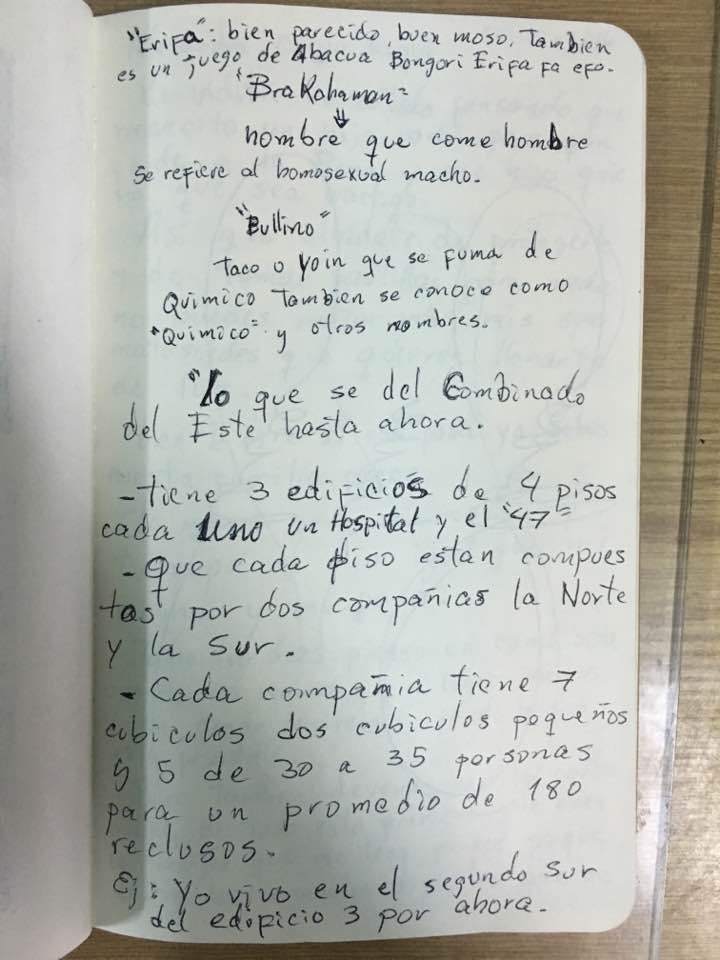 "Erifa": bien parecido, buen moso. Tambien
es un juego de Abacua Bongori Erifa fa efo.
"BraKahaman"
⇓
hombre que come hombre
Se refiere al homosexual macho.
"Bullino"
Taco o yoin que se fuma de
Quimico Tambien se conoce como
"Quimico" y otros nombres.
"lo que se del Combinado
del Este hasta ahora.
- tiene 3 edificios de 4 pisos
cada uno un Hospital y el "47"
- Que cada piso estan compues
tas por dos compañias la Norte
y la Sur.
- Cada compañia tiene 7
cubiculos dos cubiculos pequeños
y 5 de 30 a 35 personas
para un promedio de 180
reclusos.
Ej: Yo vivo en el segundo sur
del edificio 3 por ahora.